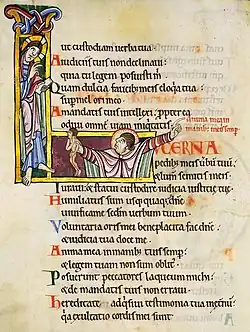 ut custodiam uerba tua.
A iudiciis tuis non declinaui:
quia tu legem posuisti m
Quam dulcia faucib; meis eloq̃a tua:
sup mel ori meo
A mandatis tuis intellexi: pp̃terea
odiui omnẽ uiam iniquitatis
anima mea in
manib; tuis semp
LUCERNA
pedib; meis uerbũ tuũ:
& lumen semitis meis
Iuraui & statui custodire iudicia iusticię tuę
Humiliatus sum usquequaq; dñe
uiuifica me secdm uerbum tuum
Voluntaria oris mei beneplacita fac dñe
& iudicia tua doce me
Anima mea in manib; tuis semp:
& legem tuam non sum oblit
Posuerunt peccatores laqueum michi:
& de mandatis tuis non erraui
Hereditate adq̃siui testimonia tua in et̃nũ
q̃a exultatio cordis mei sunt